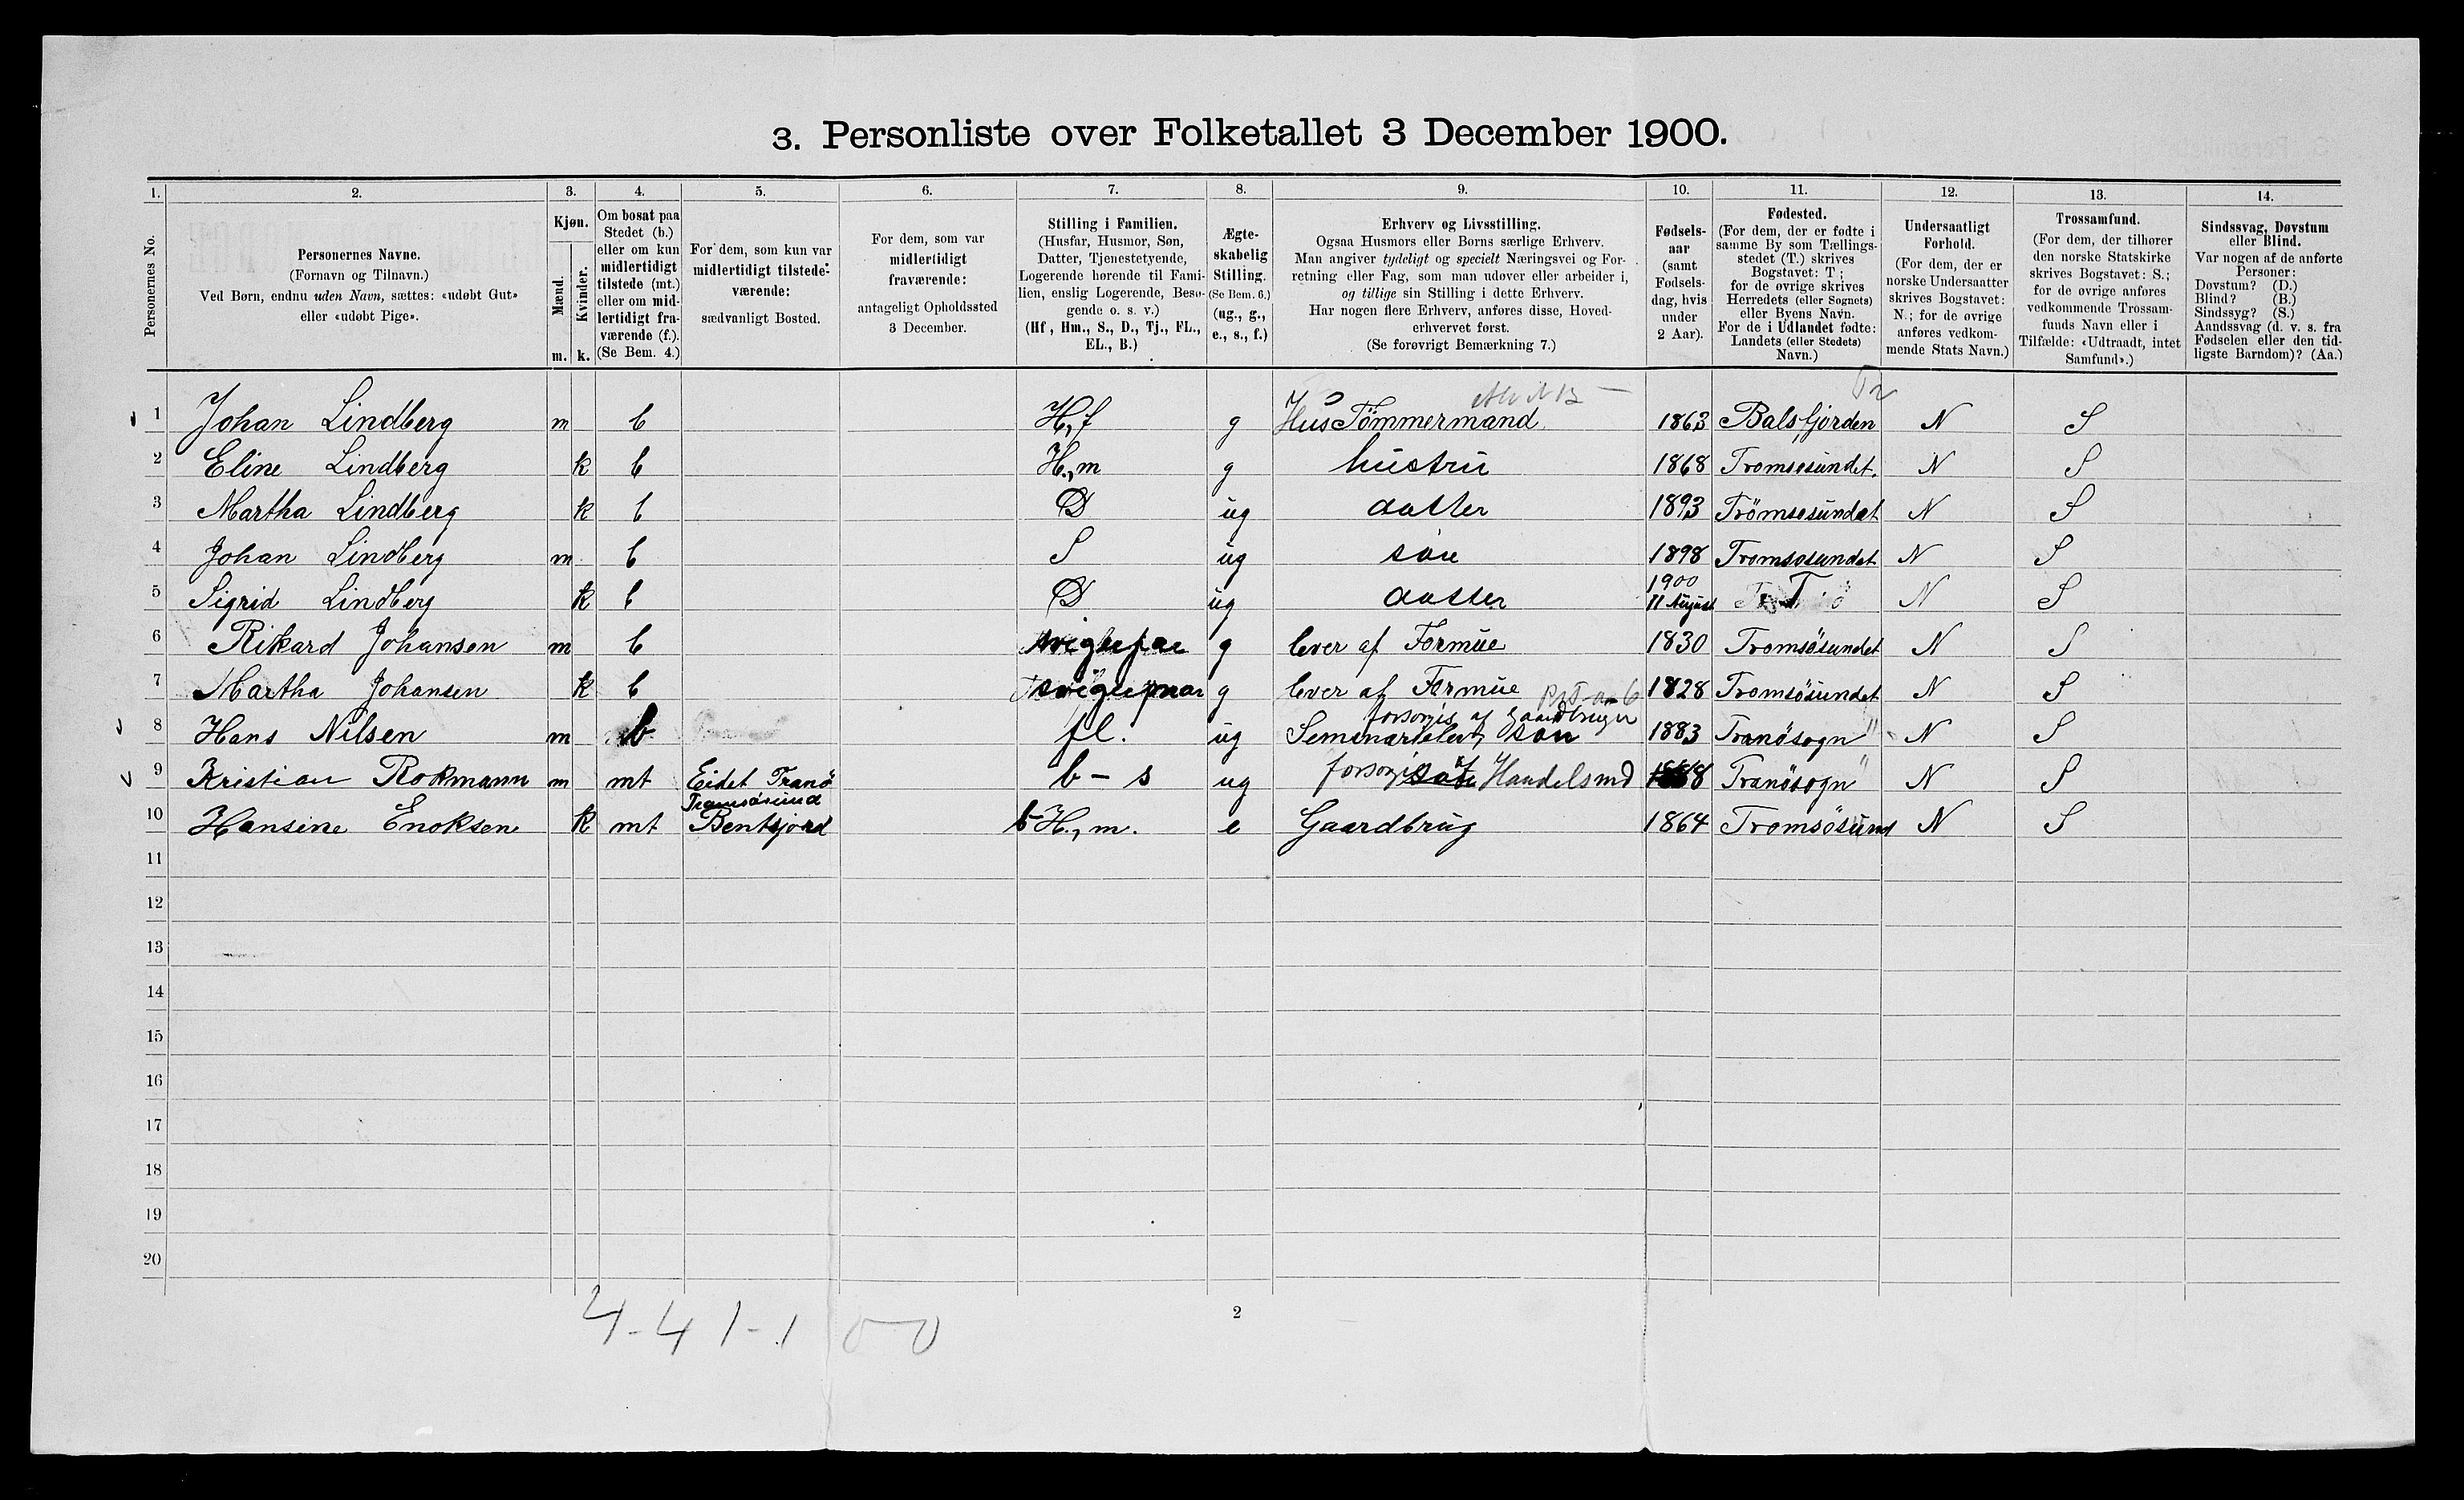 3. Personliste over Folketallet 3 December 1900.
1. 2. 3. 4. 5. 6. 7. 8. 9. 10. 11. 12. 13. 14.
Personernes No.
Personernes Navne.
(Fornavn og Tilnavn.)
Ved Børn, endnu uden Navn, sættes: «udøbt Gut»
eller «udøbt Pige».
Kjøn.
Mænd.
Kvinder.
m. k.
Om bosat paa
Stedet (b.)
eller om kun
midlertidigt
tilstede (mt.)
eller om mid-
lertidigt fra-
værende (f.).
(Se Bem. 4.)
For dem, som kun var
midlertidigt tilstede-
værende:
sædvanligt Bosted.
For dem, som var
midlertidigt
fraværende:
antageligt Opholdssted
3 December.
Stilling i Familien.
(Husfar, Husmor, Søn,
Datter, Tjenestetyende,
Logerende hørende til Fami-
lien, enslig Logerende, Besø-
gende o. s. v.)
(Hf, Hm., S., D., Tj., FL.,
EL., B.)
Ægte-
skabelig
Stilling.
(Se Bem. 6.)
(ug., g.,
e., s., f.)
Erhverv og Livsstilling.
Ogsaa Husmors eller Børns særlige Erhverv.
Man angiver tydeligt og specielt Næringsvei og For-
retning eller Fag, som man udøver eller arbeider i,
og tillige sin Stilling i dette Erhverv.
Har nogen flere Erhverv, anføres disse, Hoved-
erhvervet først.
(Se forøvrigt Bemærkning 7.)
Fødsels-
aar
(samt
Fødsels-
dag, hvis
under
2 Aar).
Fødested.
(For dem, der er fødte i
samme By som Tællings-
stedet (T.) skrives
Bogstavet: T;
for de øvrige skrives
Herredets (eller Sognets)
eller Byens Navn.
For de i Udlandet fødte:
Landets (eller Stedets)
Navn.)
Undersaatligt
Forhold.
(For dem, der er
norske Undersaatter
skrives Bogstavet:
N.; for de øvrige
anføres vedkom-
mende Stats Navn.)
Trossamfund.
(For dem, der tilhører
den norske Statskirke
skrives Bogstavet: S.;
for de øvrige anføres
vedkommende Trossam-
funds Navn eller i
Tilfælde: «Udtraadt, intet
Samfund».)
Sindssvag, Døvstum
eller Blind.
Var nogen af de anførte
Personer:
Døvstum? (D.)
Blind? (B.)
Sindssyg? (S.)
Aandssvag (d. v. s. fra
Fødselen eller den tid-
ligste Barndom)? (Aa.)
1 Johan Lindberg m b H,f g Hus Tömmermand 1863 Balsfjorden N S
2 Eline Lindberg k b H.,m g hustru 1868 Tromsosundet. N S
3 Martha Lindberg k b D ug datter 1893 Trömsosundet N S
4 Johan Lindberg m b S ug sön 1898 Tromsosundet N S
5 Sigrid Lindberg k b D ug datter 1900 11 August T N S
6 Rikard Johansen m b svigerfar g lever af Formue 1830 Tromsösundet N S
7 Martha Johansen k b svigermor g lever af Formue 1828 Tromsösundet N S
8 Hans Nilsen m b fl. ug Seminarielev, forsørges af Gaardbruger sön 1883 Tranösogn N S
9 Kristian Rokmann m mt Eidet Tranö b - s ug forsørges af Handelsmd 1888 Tranösogn N S
10 Hansine Enoksen k mt Tromsösund Bentsjord b H., m. e Gaardbrug 1864 Tromsösund N S
11
12
13
14
15
16
17
18
19
20
4-4 1-1 0-0
2